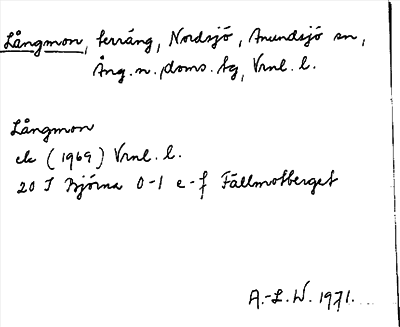 Långmon, terräng, Nordsjö, Anundsjö sn,
Ång. n. doms. tg, Vrnl. l.
Långmon
ek (1969) Vrnl. l.
20 I Björna 0-1 e-f Fällmotberget
A.-L. W. 1971.